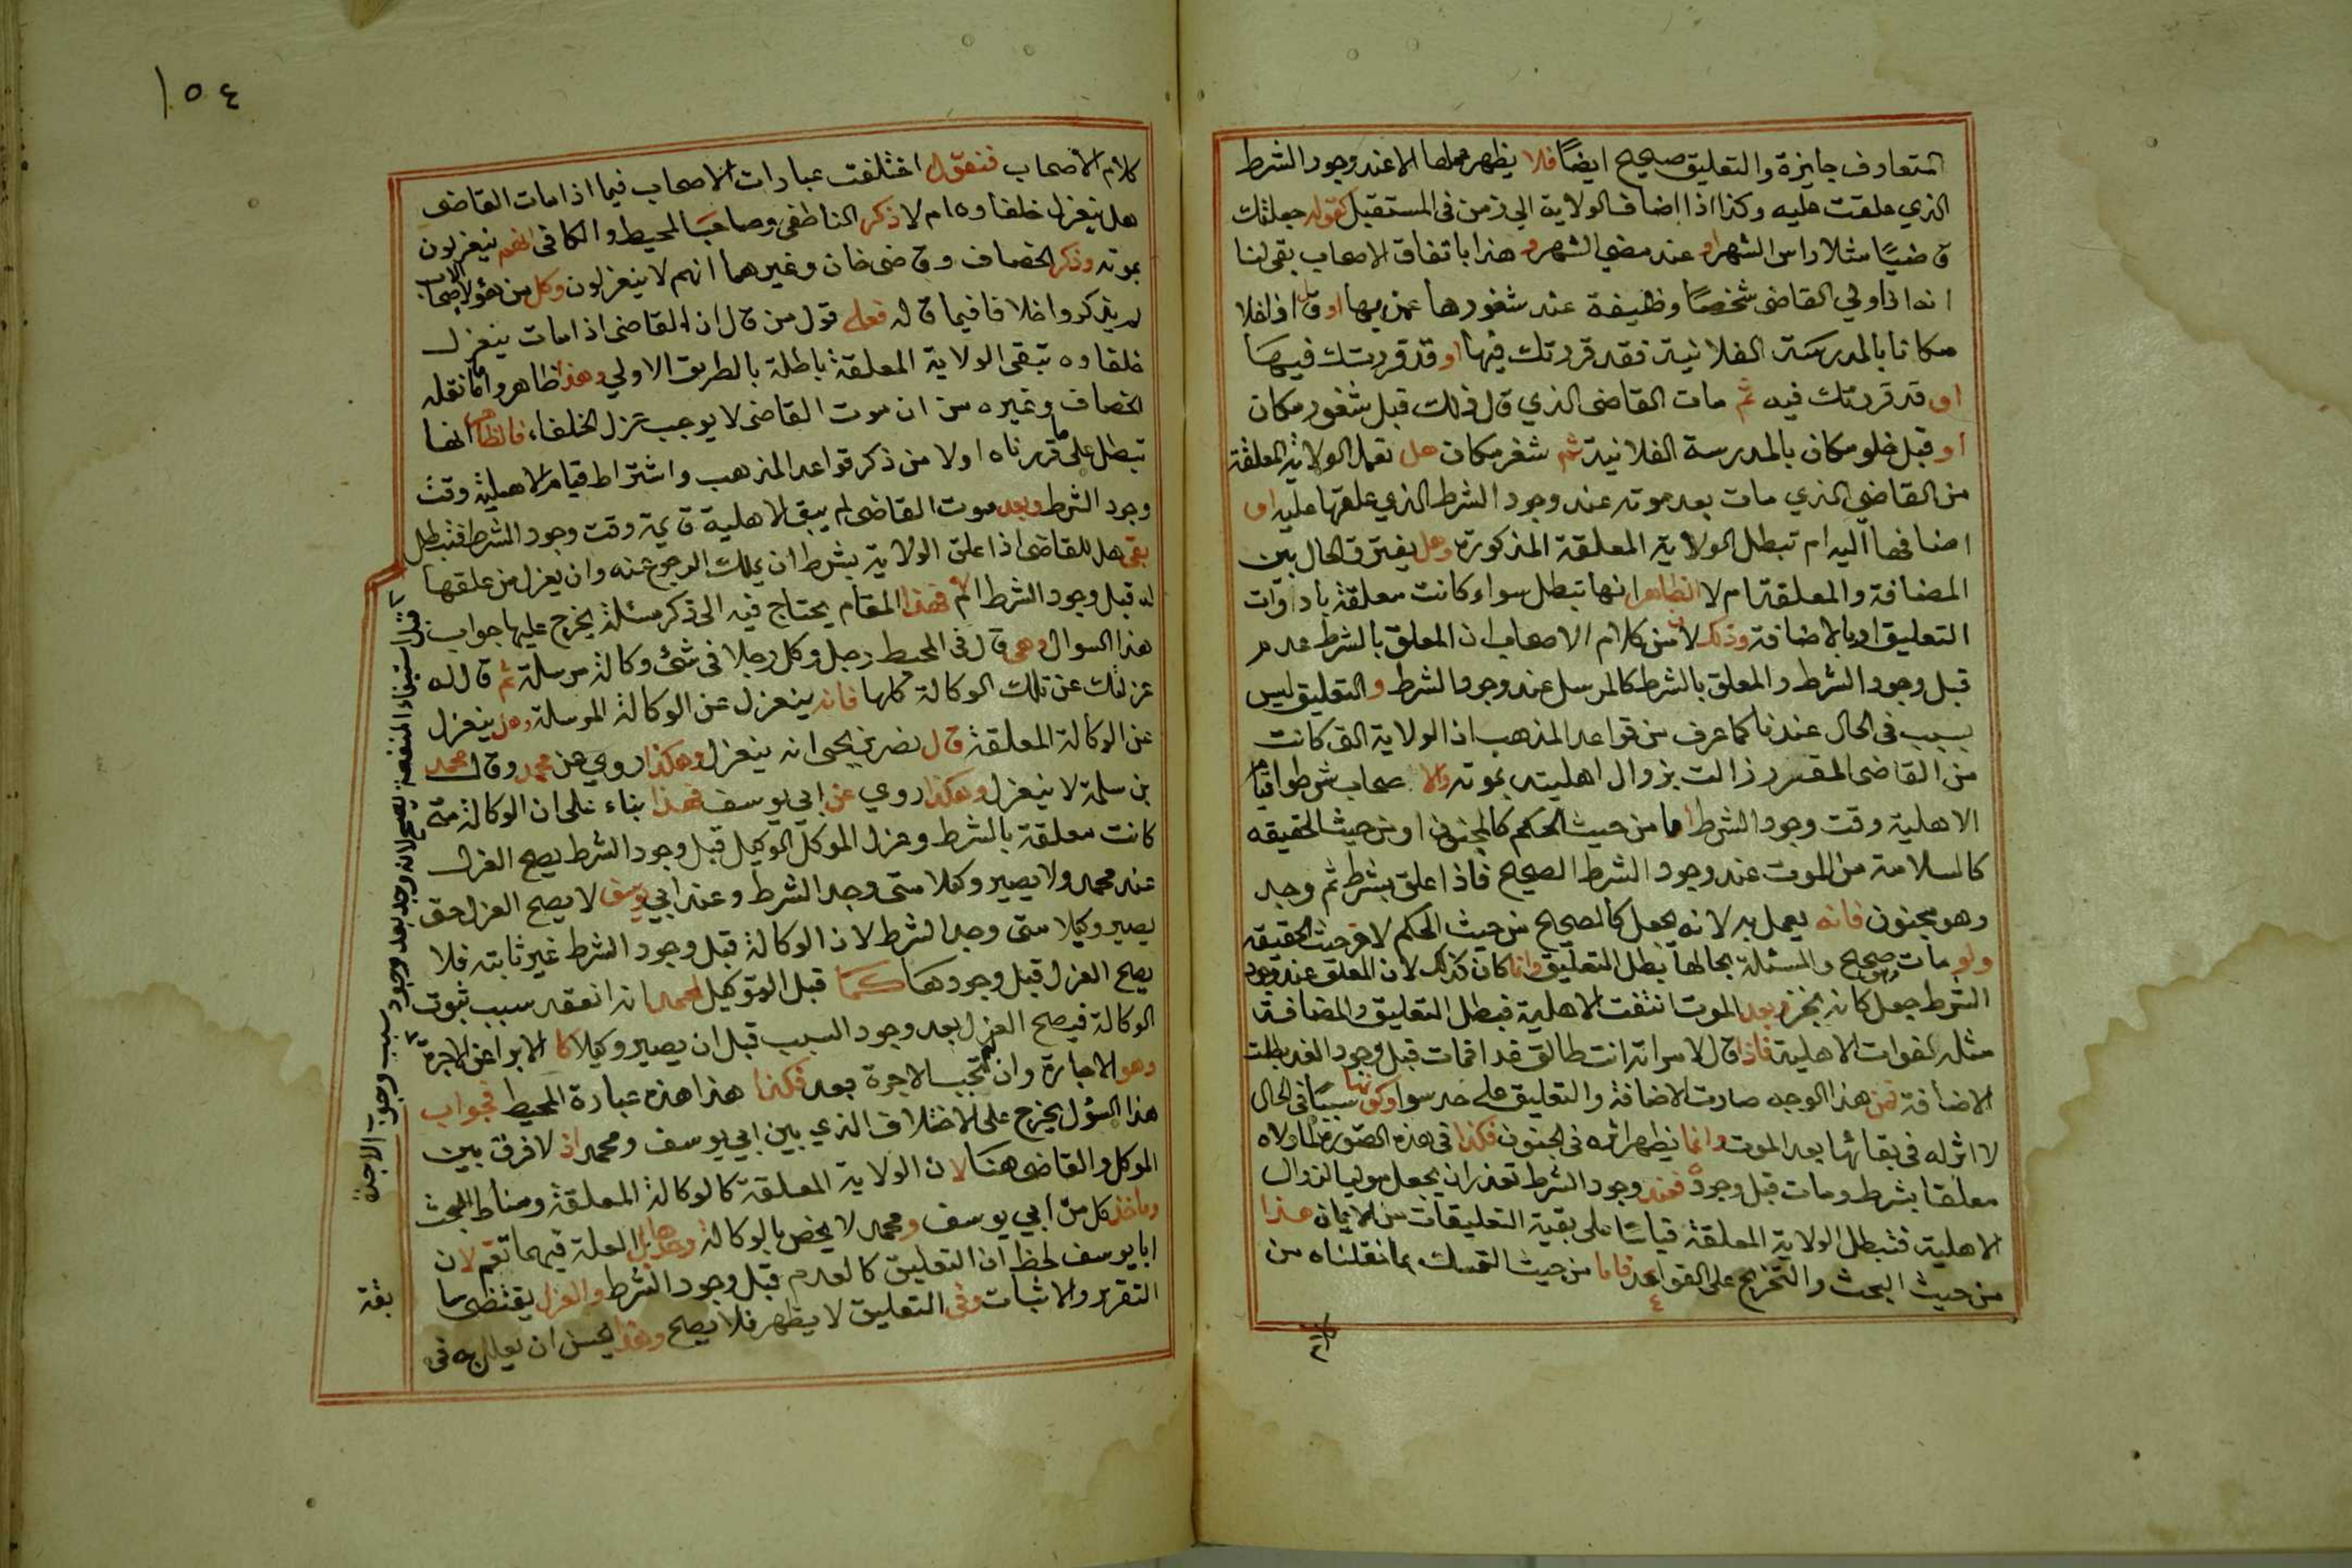 المتعارف جايزة والتعليق صحيح ايضًا فلا يظهر عملها الا عند وجود الشرط
الذي علقت عليه وكذا اذا اضاف الولاية الي زمن في المستقبل كقوله جعلتك
قاضيًا مثلا راس الشهر او عند مضي الشهر وهذا باتفاق الاصحاب بقي لنا
انه اذا ولي القاضي شخصًا وظيفة عند شغورها عمن بها او قال اذا خلا
مكانا بالمدرسة الفلانية فقد قررتك فيها او قد قررتك فيها
او قد قررتك فيه ثم مات القاضي الذي قال ذلك قبل شغور مكان
او قبل خلو مكان بالمدرسة الفلانية ثم شغر مكان هل تعمل الولاية المعلقة
من القاضي الذي مات بعد موته عند وجود الشرط الذي علقها عليه او
اضافها اليه ام تبطل الولاية المعلقة المذكورة وهل يفترق الحال بين
المضافة والمعلقة ام لا الظاهر انها تبطل سواء كانت معلقة بادوات
التعليق او بالاضافة وذلك لان من كلام الاصحاب ان المعلق بالشرط عدم
قبل وجود الشرط والمعلق بالشرط كالمرسل عند وجود الشرط والتعليق ليس
بسبب في الحال عندنا كما عرف من قواعد المذهب اذ الولاية التي كانت
من القاضي المقرر زالت بزوال اهليته بموته والاصحاب شرطوا قيام
الاهلية وقت وجود الشرط اما من حيث الحكم كالمجنون او من حيث الحقيقه
كالسلامة من الموت عند وجود الشرط الصحيح فاذا علق بشرط ثم وجد
وهو مجنون فانه يعمل به لانه يجعل كالصحيح من حيث الحكم لا من حيث الحقيقه
ولو مات وهو صحيح والمسئلة بحالها بطل التعليق وانما كان كذلك لان المعلق عند وجود
الشرط جعل كانه نجز وبعد الموت انتفت الاهلية فبطل التعليق والمضافة
مثله لفوات الاهلية فاذا قال لامراته انت طالق غدا فمات قبل وجود الغد بطلت
الاضافة فمن هذا الوجه صارت الاضافة والتعليق على حد سوا وكونها سببًا في الحال
لا اثر له في بقائها بعد الموت وانما يظهر اثره في الجنون فكذا في هذه الصورة لما ولاه
معلقا بشرط ومات قبل وجوده فعند وجود الشرط تعذر ان يجعل موليا لزوال
الاهلية فتبطل الولاية المعلقة قياسًا على بقية التعليقات من الايمان هذا
من حيث البحث والتخريج على القواعد فاما من حيث التمسك بما نقلناه من
١٥٤
كلام الاصحاب فنقول اختلفت عبارات الاصحاب فيما اذا مات القاضي
هل ينعزل خلفاوه ام لا ذكر الناطفي وصاحب المحيط والكافي انهم ينعزلون
بموته وذكر الخصاف وقاضي خان وغيرهما انهم لا ينعزلون وكل من هؤلاء الاصحاب
لم يذكروا خلافا فيما قاله فعلى قول من قال ان القاضي اذا مات ينعزل
خلفاوه تبقى الولاية المعلقة باطلة بالطريق الاولي وهذا ظاهر واما ما نقله
الخصاف وغيره من ان موت القاضي لا يوجب عزل الخلفاء فالظاهر انها
تبطل على ما قررناه اولا من ذكر قواعد المذهب واشتراط قيام الاهلية وقت
وجود الشرط وبعد موت القاضي لم يبق الاهلية قايمة وقت وجود الشرط فتبطل
بقي هل للقاضي اذا علق الولاية بشرط ان يملك الرجوع عنه وان يعزل من علقها
له قبل وجود الشرط ام لا فهذا المقام يحتاج فيه الى ذكر مسئلة يخرج عليها جواب
هذا السوال وهي قال في المحيط رجل وكل رجلا في شئ وكالة مرسلة ثم قال له
عزلتك عن تلك الوكالة كلها فانه ينعزل عن الوكالة المرسلة وهل ينعزل
عن الوكالة المعلقة قال نصر بن يحيى انه ينعزل وهكذا روي عن محمد وقال محمد
بن سلمة لا ينعزل وهكذا روي عن ابي يوسف فهذا بناء على ان الوكالة متى
كانت معلقة بالشرط وعزل الموكل الوكيل قبل وجود الشرط يصح العزل
عند محمد ولا يصير وكيلا متى وجد الشرط وعند ابي يوسف لا يصح العزل حتى
يصير وكيلا متى وجد الشرط لان الوكالة قبل وجود الشرط غير ثابته فلا
يصح العزل قبل وجودها كما قبل التوكيل لمحمد انه انعقد سبب ثبوت
الوكالة فيصح العزل بعد وجود السبب قبل ان يصير وكيلا كالابرا عن الاجرة
وهو الاجارة وان لم تجب الاجرة بعد فكذا هذا هذه عبارة المحيط فجواب
هذا السؤل يخرج على الاختلاف الذي بين ابي يوسف ومحمد اذ لا فرق بين
الموكل والقاضي هنا لان الولاية المعلقة كالوكالة المعلقة ومناط البحث
وماخذ كل من ابي يوسف ومحمد لا يخص بالوكالة وحدها بل العلة فيهما تعم لان
ابا يوسف لحظ ان التعليق كالعدم قبل وجود الشرط والعزل يقتضي سا
التقرير والاثبات وفي التعليق لا يظهر فلا يصح وهذا يحسن ان يعلل به في
قبل استيفاء المنفعة يصح لانه وجد بعد وجود سبب وجوب الاجرة
بقية